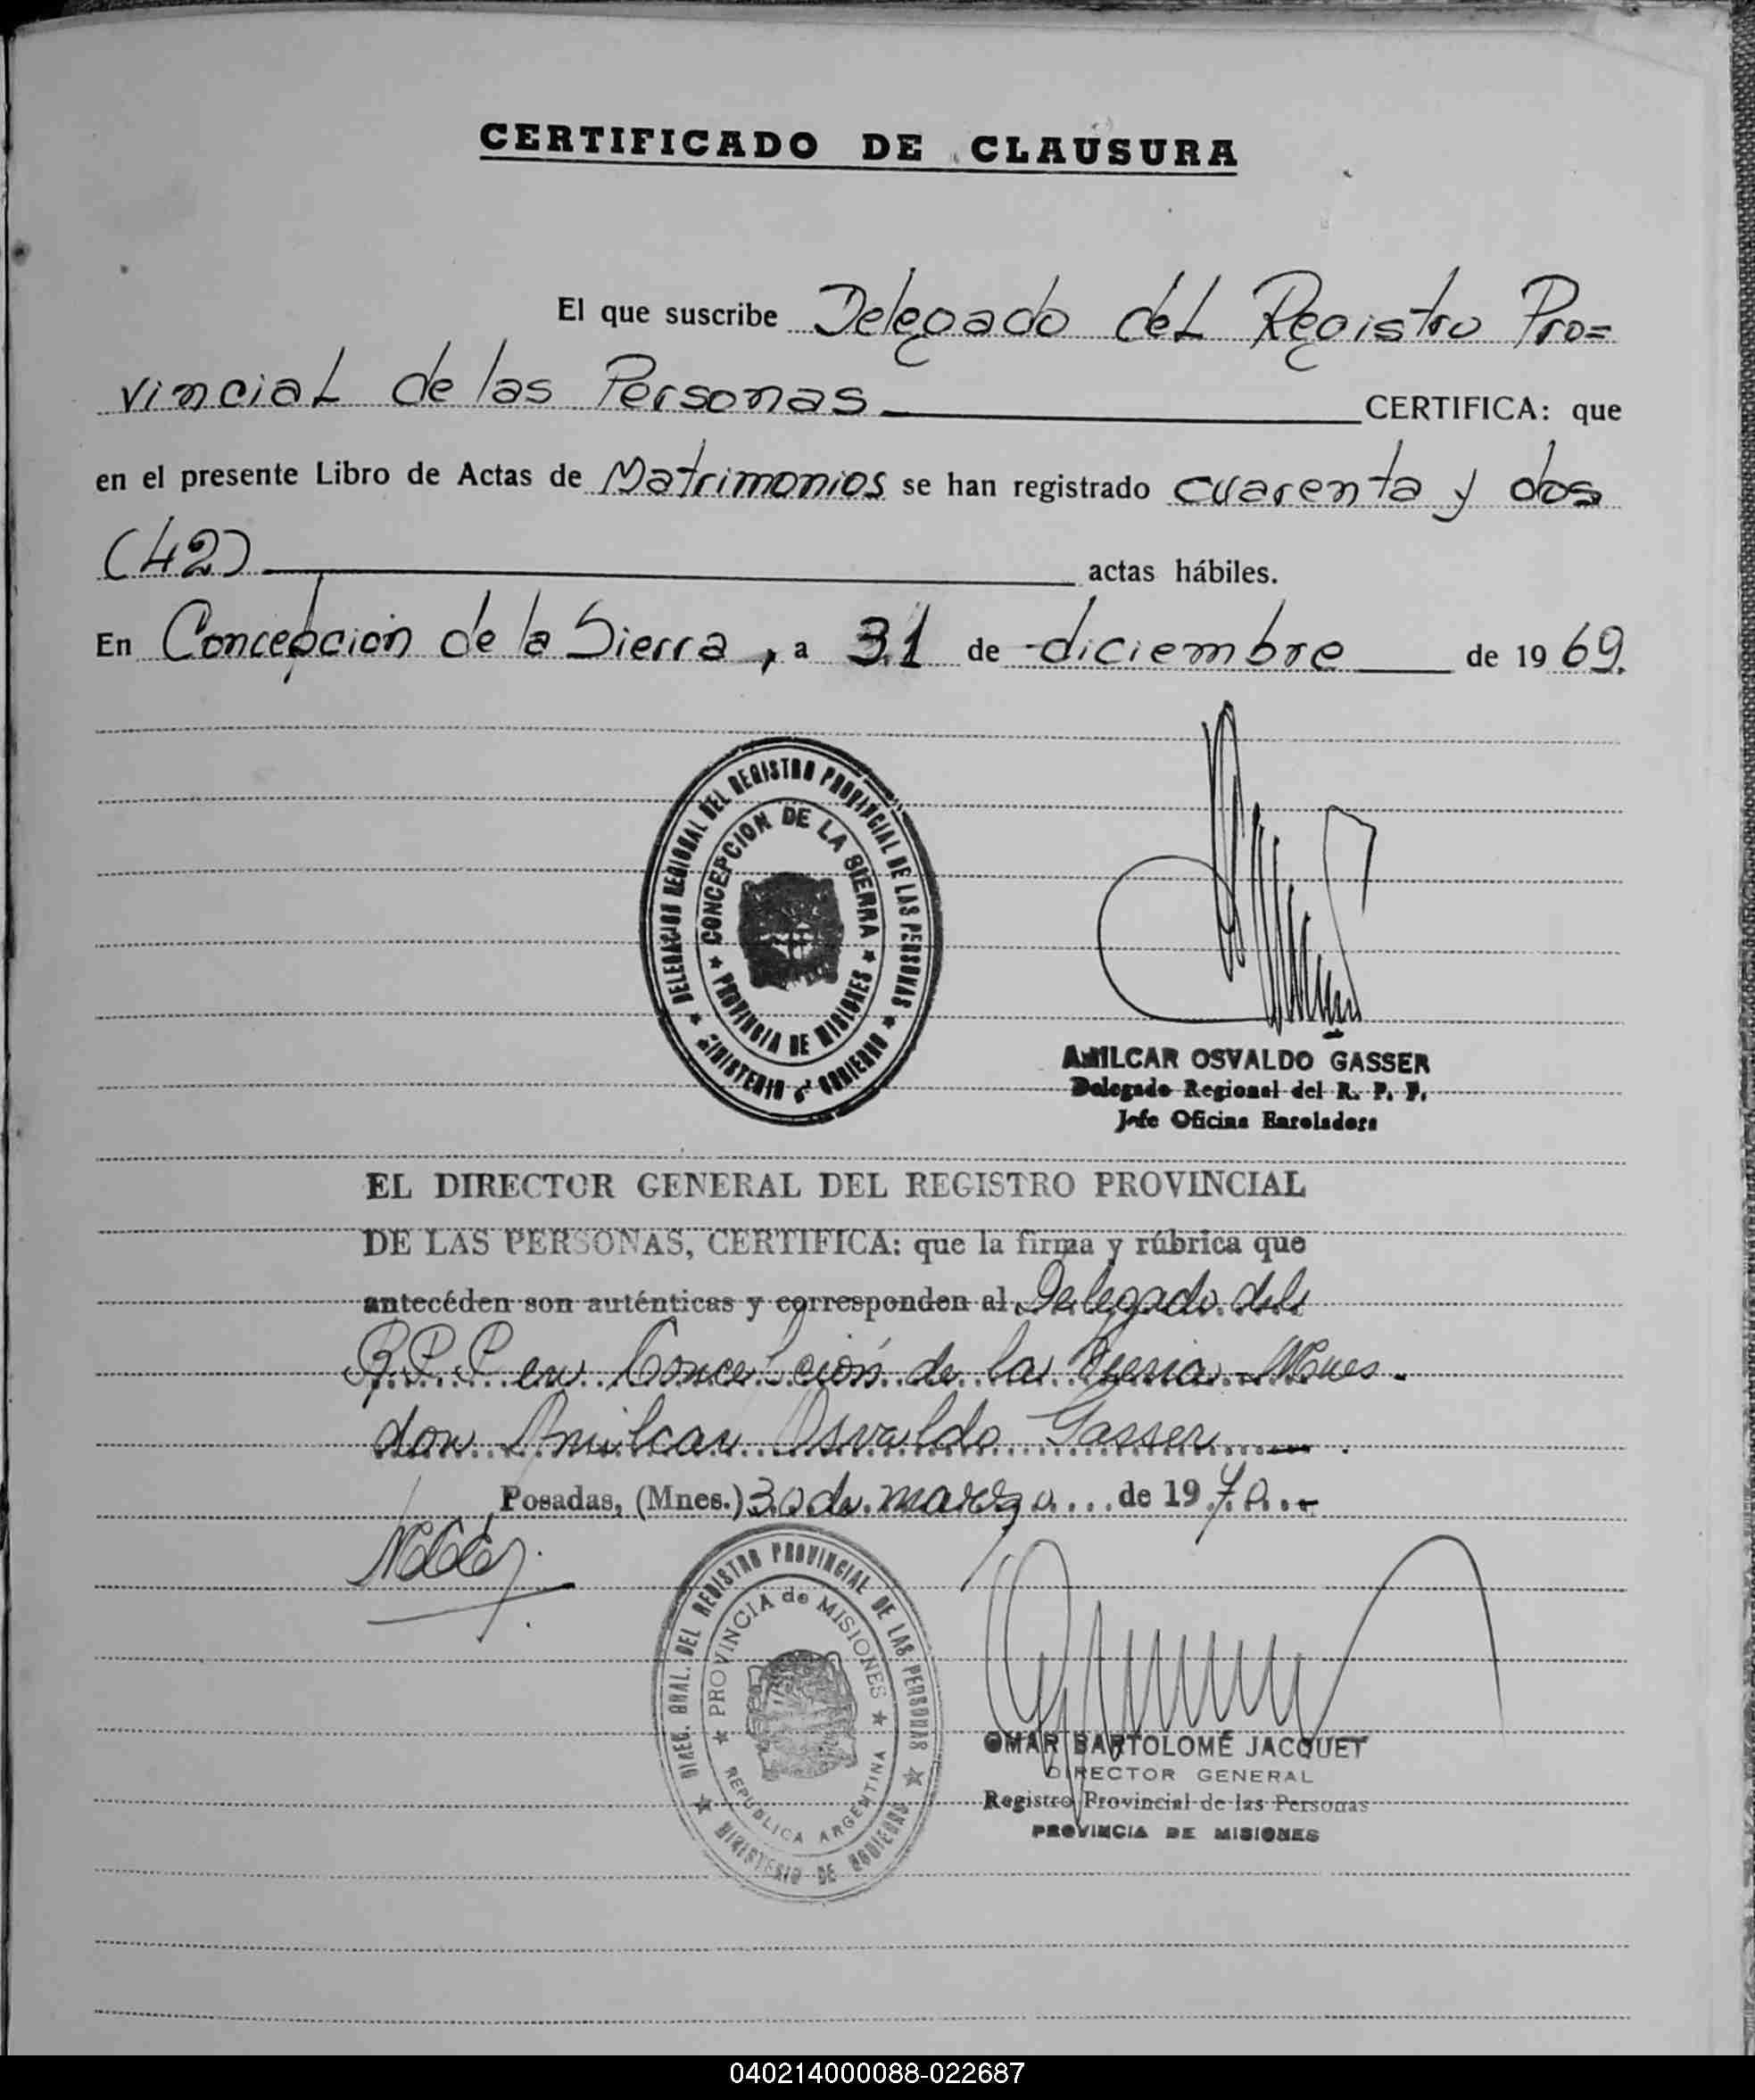 CERTIFICADO DE CLAUSURA
El que suscribe Delegado del Registro Pro=
vincial de las Personas CERTIFICA: que
en el presente Libro de Actas de Matrimonios se han registrado cuarenta y dos
(42) actas hábiles.
En Concepción de la Sierra, a 31 de diciembre de 1969.
DELEGACION REGIONAL DEL REGISTRO PROVINCIAL DE LAS PERSONAS
CONCEPCION DE LA SIERRA
PROVINCIA DE MISIONES
MINISTERIO GOBIERNO
AMILCAR OSVALDO GASSER
Delegado Regional del R. P. P.
Jefe Oficina
EL DIRECTOR GENERAL DEL REGISTRO PROVINCIAL
DE LAS PERSONAS, CERTIFICA: que la firma y rúbrica que
antecéden son auténticas y corresponden al Delegado del
R.P.P. en Concepción de la Sierra - Mnes.
don Amilcar Osvaldo Gasser
Posadas, (Mnes.) 30 de marzo de 1970
DIREC. GRAL. DEL REGISTRO PROVINCIAL DE LAS PERSONAS
PROVINCIA de MISIONES
REPUBLICA ARGENTINA
MINISTERIO DE GOBIERNO
OMAR BARTOLOMÉ JACQUET
DIRECTOR GENERAL
Registro Provincial de las Personas
PROVINCIA DE MISIONES
040214000088-022687